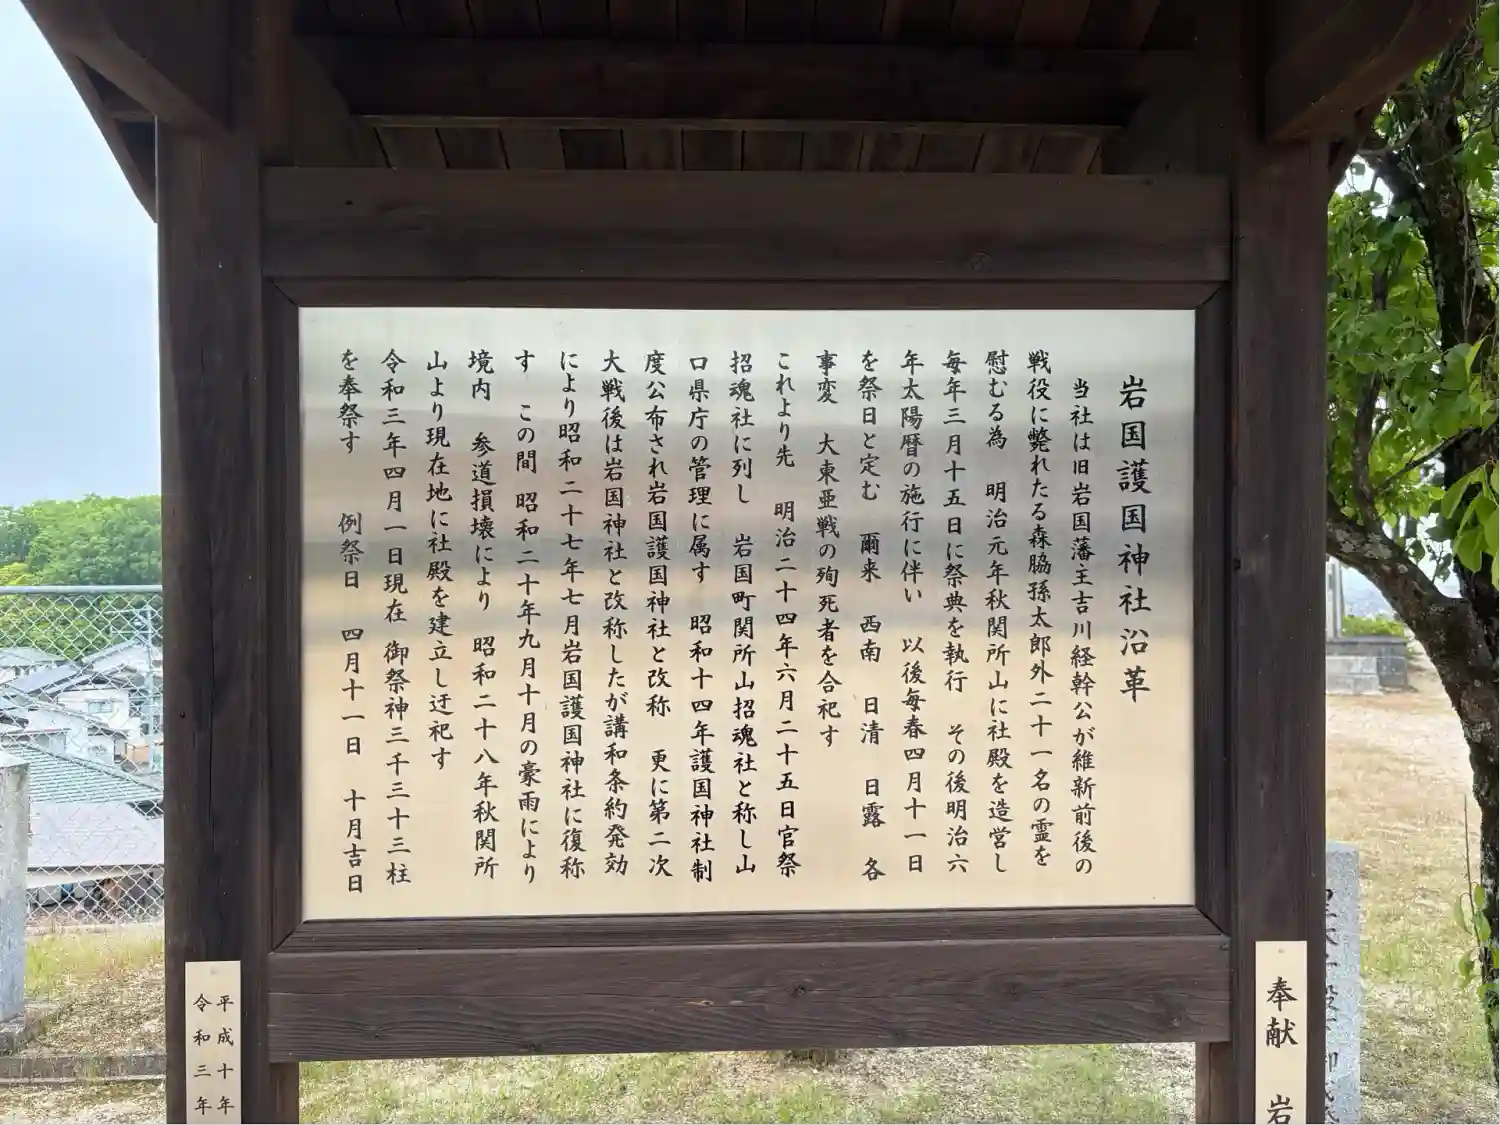 岩国護国神社沿革
当社は旧岩国藩主吉川経幹公が維新前後の
戦役に斃れたる森脇孫太郎外二十一名の霊を
慰むる為 明治元年秋関所山に社殿を造営し
毎年三月十五日に祭典を執行 その後明治六
年太陽暦の施行に伴い 以後毎春四月十一日
を祭日と定む 爾来 西南 日清 日露 各
事変 大東亜戦の殉死者を合祀す
これより先 明治二十四年六月二十五日官祭
招魂社に列し 岩国町関所山招魂社と称し山
口県庁の管理に属す 昭和十四年護国神社制
度公布され岩国護国神社と改称 更に第二次
大戦後は岩国神社と改称したが講和条約発効
により昭和二十七年七月岩国護国神社に復称
す この間 昭和二十年九月十月の豪雨により
境内 参道損壊により 昭和二十八年秋関所
山より現在地に社殿を建立し迂祀す
令和三年四月一日現在 御祭神三千三十三柱
を奉祭す 例祭日 四月十一日 十月吉日
奉献 岩
平成十年
令和三年